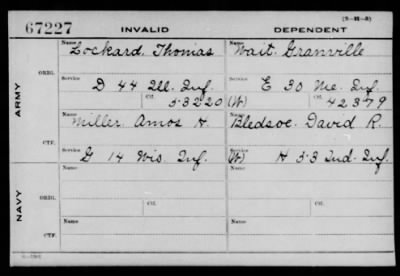 (3-H-3)
67227 INVALID DEPENDENT
Name Lockard, Thomas Name Wait, Granville
ORIG. Service D 44 Ill. Inf. Service E 30 Me. Inf.
Ctf. 53220 (W) Ctf. 42379
ARMY
Name Miller, Amos H. Name Bledsoe, David R.
CTF. Service G 14 Wis. Inf. Service (W) H 33 Ind. Inf.
Name Name
ORIG. Service Ctf. Service Ctf.
NAVY
Name Name
CTF.